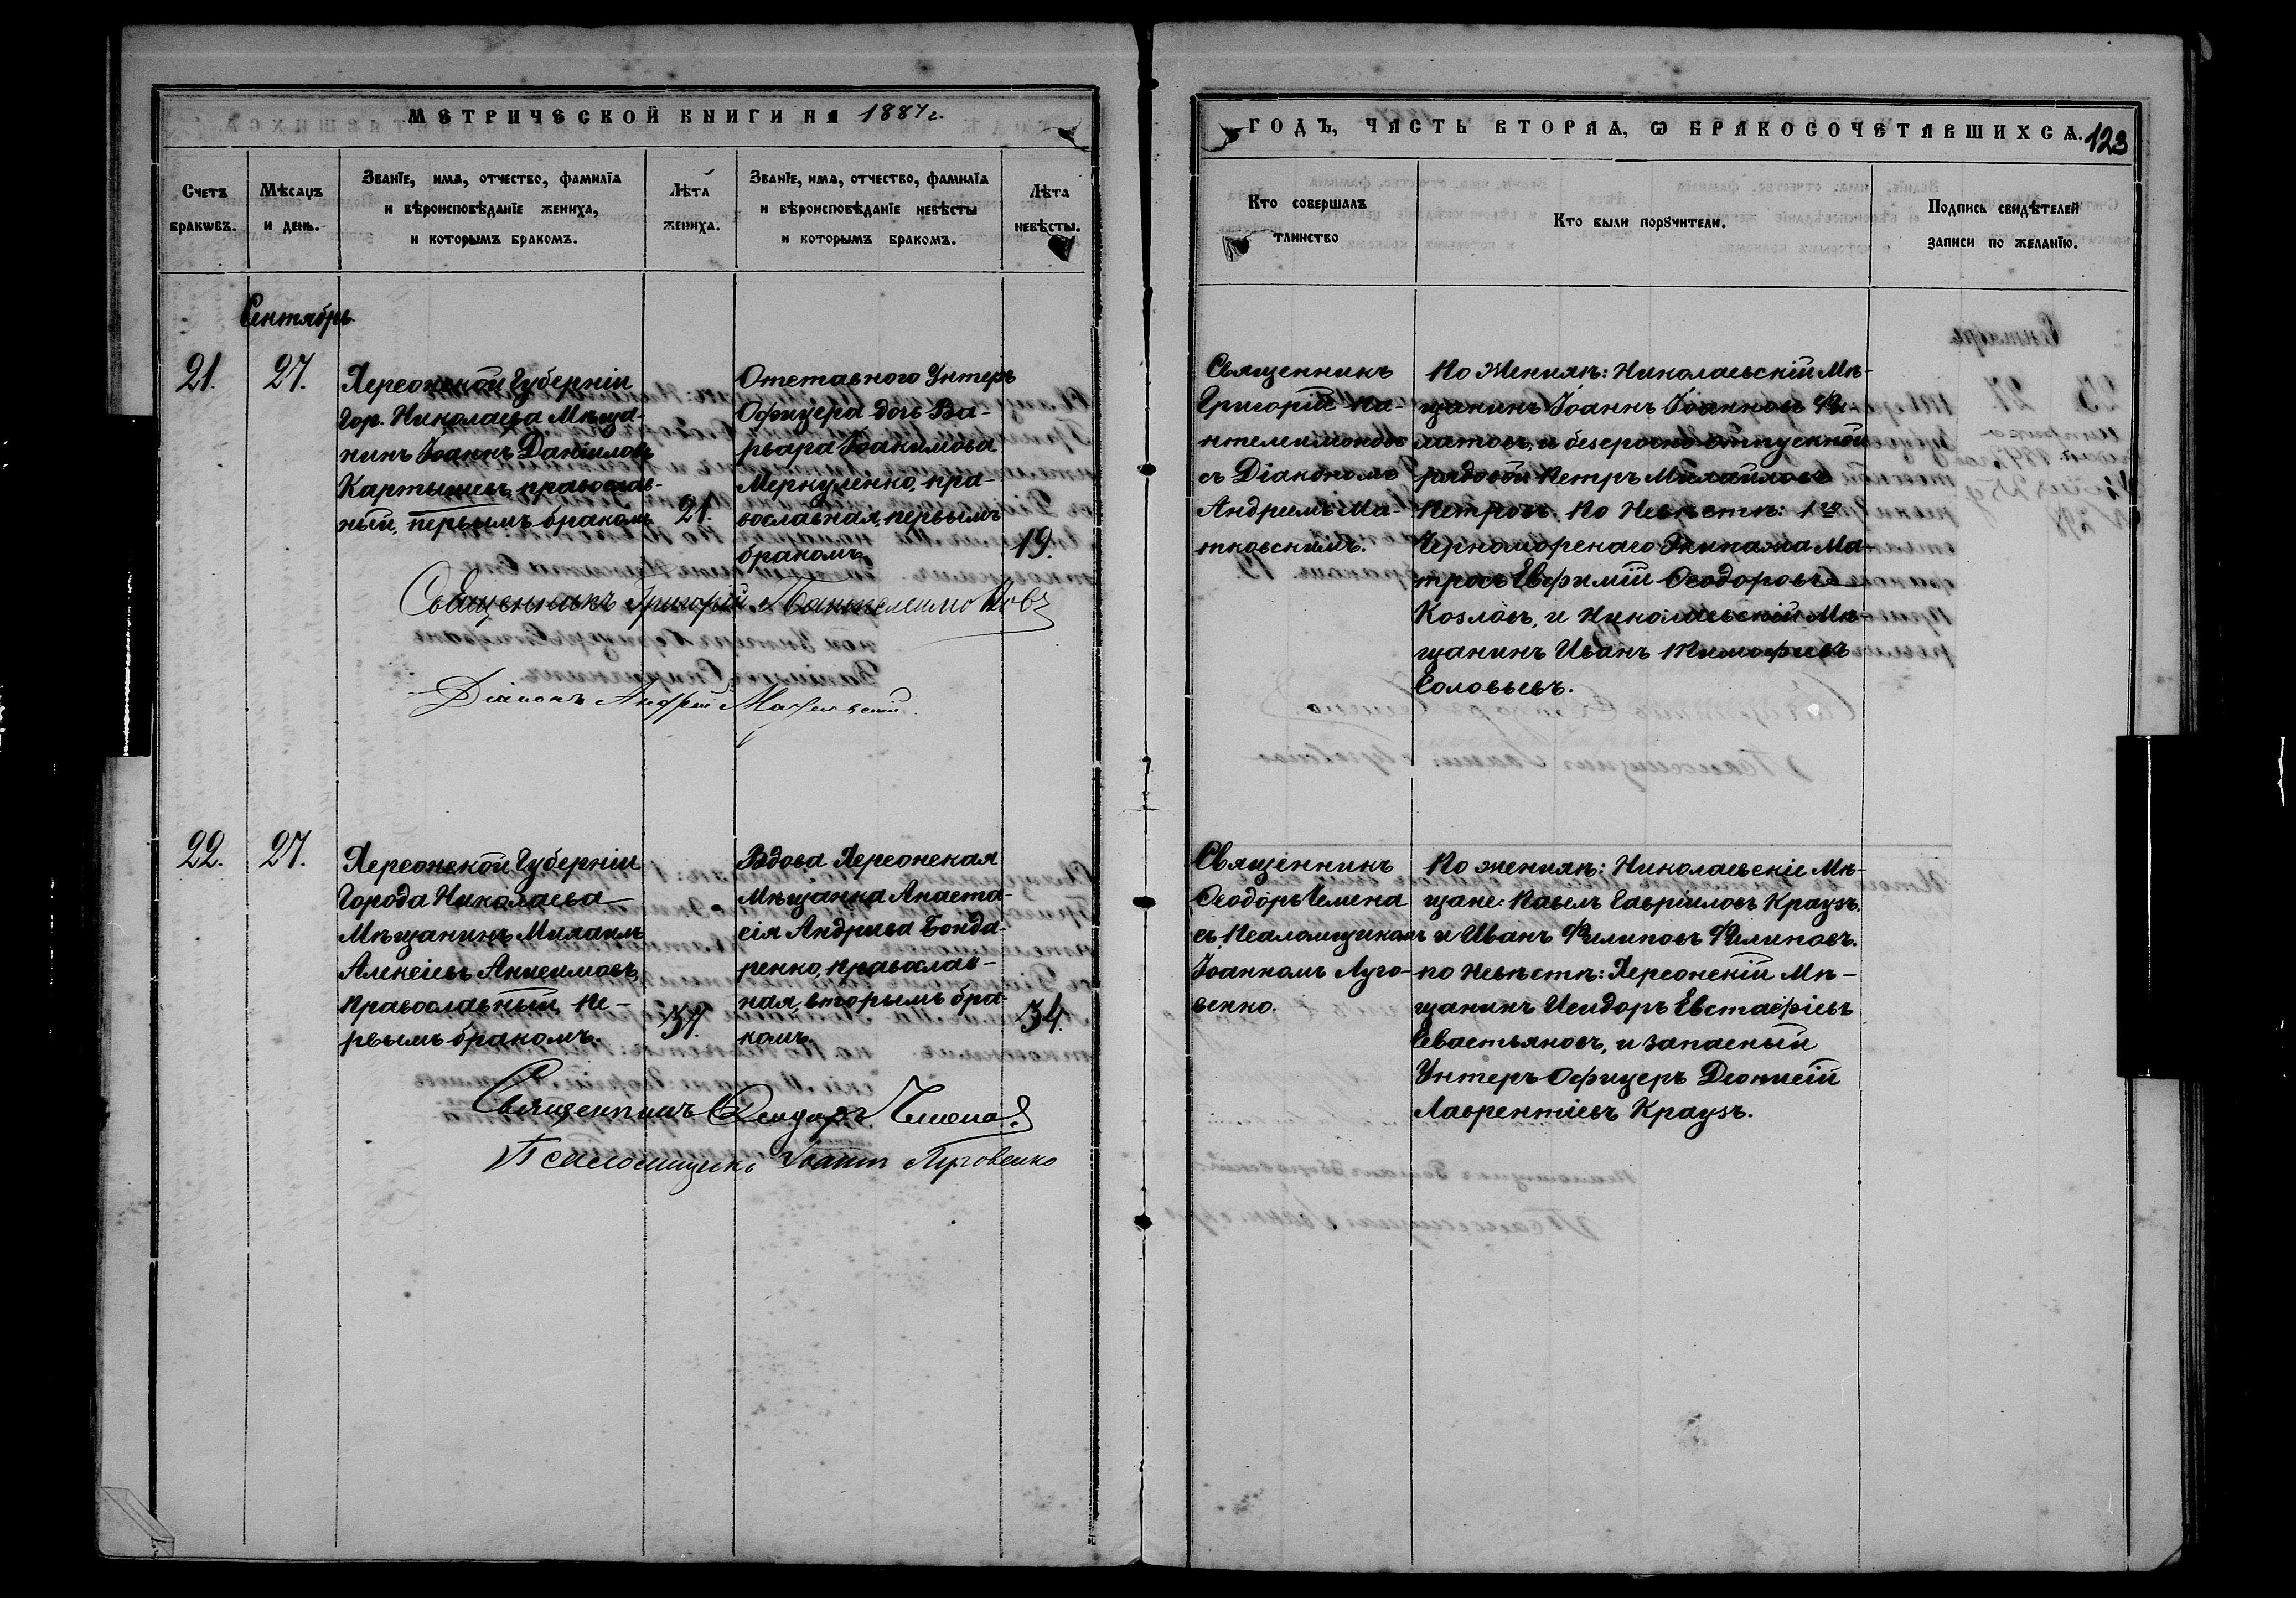 МЕТРИЧЕСКОЙ КНИГИ НА 1887 г.
Счетъ браковъ.
Мѣсяцъ и день.
Званїе, имя, отчество, фамилїя
и вѣроисповѣданїе жениха,
и которымъ бракомъ.
Лѣта
жениха.
Званїе, имя, отчество, фамилїя
и вѣроисповѣданїе невѣсты
и которымъ бракомъ.
Лѣта
невѣсты.
Сентябрь
21.
27.
Херсонской Губерніи
Гор. Николаева Мѣща-
нинъ Іоаннъ Даніиловъ
Картышевъ, православ-
ный, первымъ бракомъ
21.
Отставного Унтеръ
Офицера дочь Ва-
рвара Іоакимова
Меркуленко, пра-
вославная, первымъ
бракомъ.
19.
Священникъ Григорій Пантелеимоновъ
Діаконъ Андрей
22.
27.
Херсонской Губерніи
Города Николаева
Мѣщанинъ Михаилъ
Алексіевъ Анисимовъ,
православный, пе-
рвымъ бракомъ.
37.
Вдова Херсонская
Мѣщанка Анаста-
сія Андреева Бонда-
ренко, православ-
ная, вторымъ бра-
комъ.
34.
Священникъ Ѳеодоръ Чемена
Псаломщикъ Іоаннъ Луговенко
ГОДЪ, ЧАСТЬ ВТОРАЯ, Ѡ БРАКОСОЧЕТАВШИХСЯ. 123
Кто совершалъ
таинство
Кто были порꙋчители.
Подпись свидѣтелей
записи по желанїю.
Священникъ
Григорій Па-
нтелеимоновъ
съ Діакономъ
Андреемъ Ма-
тковскимъ.
По Женихѣ: Николаевскій Мѣ-
щанинъ Іоаннъ Іоанновъ
и безсрочно-отпускной
рядовой Петръ Михайловъ
Петровъ. По Невѣстѣ: 1го
Черноморскаго Экипажа Ма-
тросъ Евфимій Ѳеодоровъ
Козловъ, и Николаевскій Мѣ-
щанинъ Иванъ Тимофеевъ
Соловьевъ.
Священникъ
Ѳеодоръ Чемена
съ Псаломщикомъ
Іоанномъ Луго-
венко.
По женихѣ: Николаевскіе Мѣ-
щане: Павелъ Гавріиловъ Краузъ.
и Иванъ Филиповъ Филиповъ.
по Невѣстѣ: Херсонскій Мѣ-
щанинъ Исидоръ Евстафіевъ
Севастьяновъ, и запасный
Унтеръ Офицеръ Діонисій
Лаврентіевъ Краузъ.